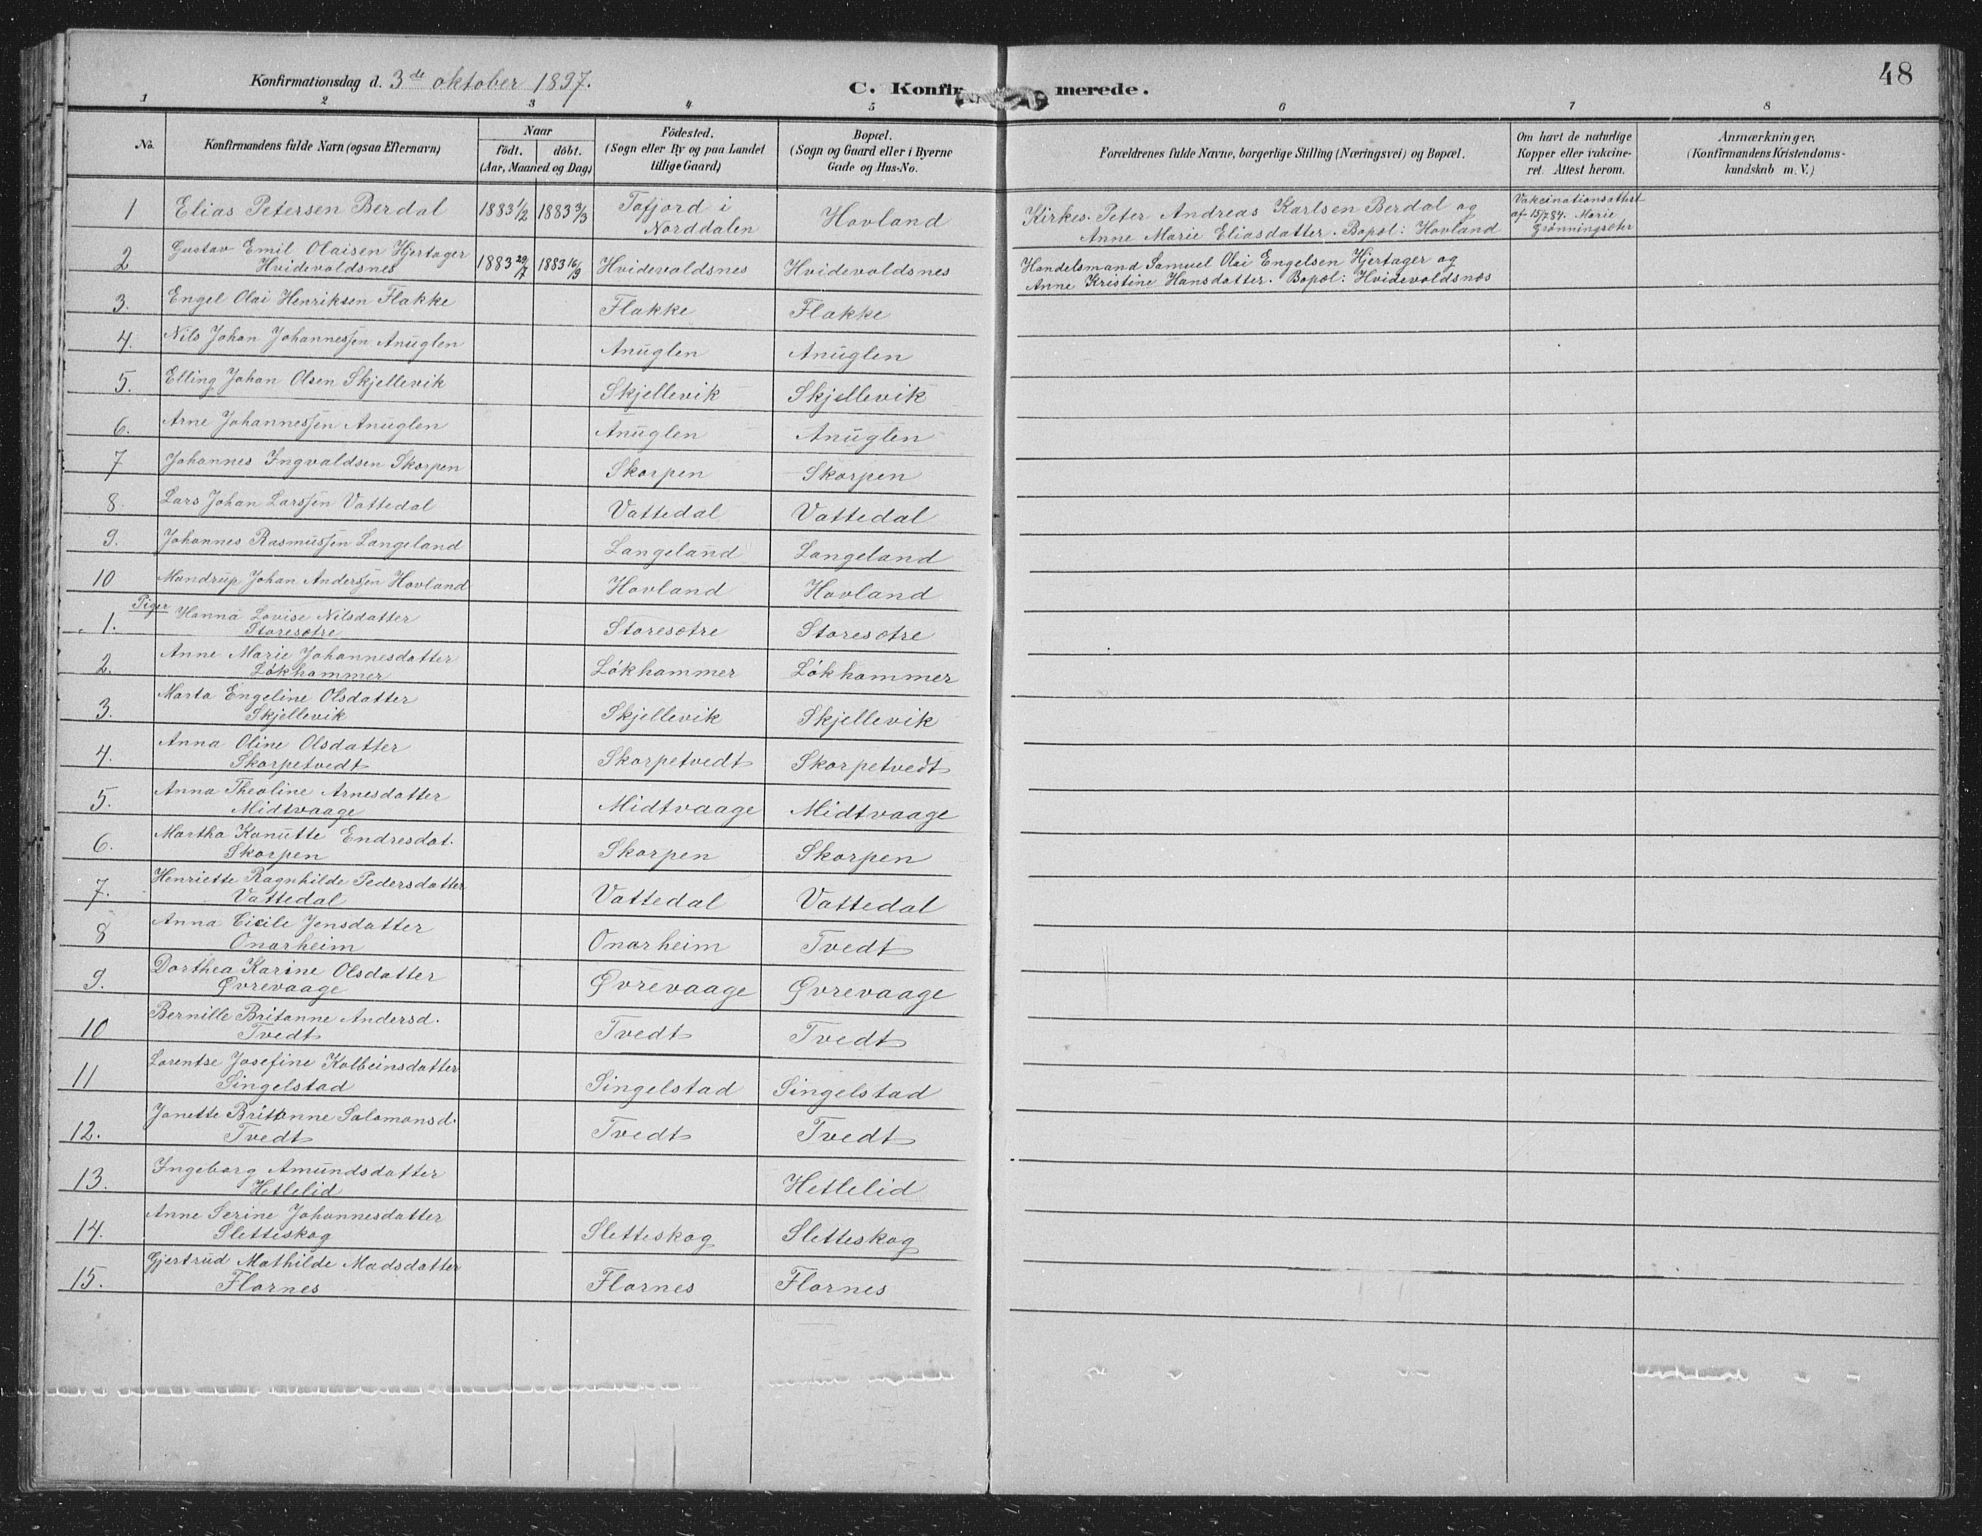 48
Konfirmationsdag d. 3de oktober 1897.
C. Konfir merede.
1 2 3 4 5 6 7 8
No. Konfirmandens fulde Navn (ogsaa Efternavn) Naar født. døbt. (Aar, Maaned og Dag) Födested. (Sogn eller By og paa Landet tillige Gaard) Bopæl. (Sogn og Gaard eller i Byerne Gade og Hus-No. Forældrenes fulde Navne, borgerlige Stilling (Næringsvei) og Bopæl. Om havt de naturlige Kopper eller vakcineret. Attest herom. Anmærkninger, (Konfirmandens Kristendomskundskab m. V.)
1 Elias Petersen Berdal 1883 1/2 1883 3/3 Tafjord i Norddalen Hovland Kirkes. Peter Andreas Karlsen Berdal og Anne Marie Eliasdatter. Bopæl: Hovland Vakcinationsattest af 15/7 84. Marie Grønningsæter
2 Gustav Emil Olaisen Hjertager Hvidevoldsnes 1883 29/7 1883 16/9 Hvidevoldsnes Hvidevoldsnes Handelsmand Samuel Olai Engelsen Hjertager og Anne Kristine Hansdatter. Bopæl: Hvidevoldsnæs
3. Engel Olai Henriksen Flakke Flakke Flakke
4. Nils Johan Johannessen Anuglen Anuglen Anuglen
5. Elling Johan Olsen Skjellevik Skjellevik Skjellevik
6. Arne Johannessen Anuglen Anuglen Anuglen
7 Johannes Ingvaldsen Skorpen Skorpen Skorpen
8 Lars Johan Larssen Vattedal Vattedal Vattedal
9. Johannes Rasmussen Langeland Langeland Langeland
10 Mandrup Johan Anderssen Hovland Hovland Hovland
Piger
1. Hanna Lovise Nilsdatter Storesætre Storesætre Storesætre
2. Anne Marie Johannesdatter Løkhammer Løkhammer Løkhammer
3. Marta Engeline Olsdatter Skjellevik Skjellevik Skjellevik
4. Anna Oline Olsdatter Skorpetvedt Skorpetvedt Skorpetvedt
5. Anna Theoline Arnesdatter Midtvaage Midtvaage Midtvaage
6. Martha Kanutte Endresdat. Skorpen Skorpen Skorpen
7. Henriette Ragnhilde Pedersdatter Vattedal Vattedal Vattedal
8 Anna Cicile Jensdatter Onarheim Onarheim Tvedt
9. Dorthea Karine Olsdatter Øvrevaage Øvrevaage Øvrevaage
10 Bernille Britanne Andersd. Tvedt Tvedt Tvedt
11 Lorentse Josefine Kolbeinsdatter Singelstad Singelstad Singelstad
12. Janette Britanne Salamonsd. Tvedt Tvedt Tvedt
13. Ingeborg Amundsdatter Hetlelid Hetlelid
14. Anne Serine Johannesdatter Sletteskog Sletteskog Sletteskog
15. Gjertrud Mathilde Madsdatter Flornes Flornes Flornes